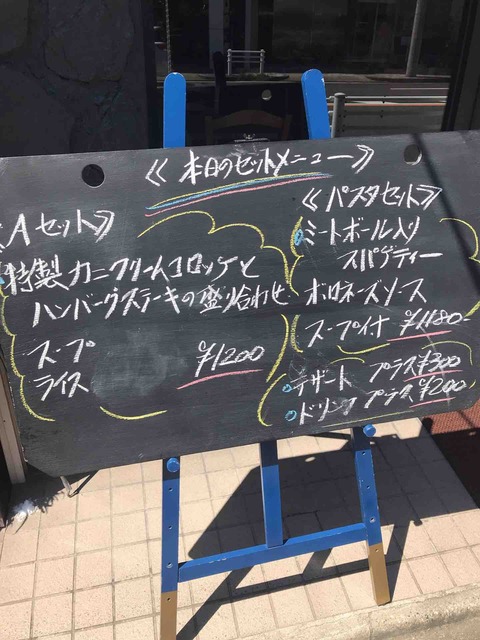 ≪本日のセットメニュー≫
≪Aセット≫
特製カニクリームコロッケと
ハンバーグステーキの盛り合わせ
スープ
ライス
¥1200
≪パスタセット≫
ミートボール入り
スパゲティー
ボロネーズソース
スープ付 ¥1180-
デザート プラス¥300
ドリンク プラス¥200